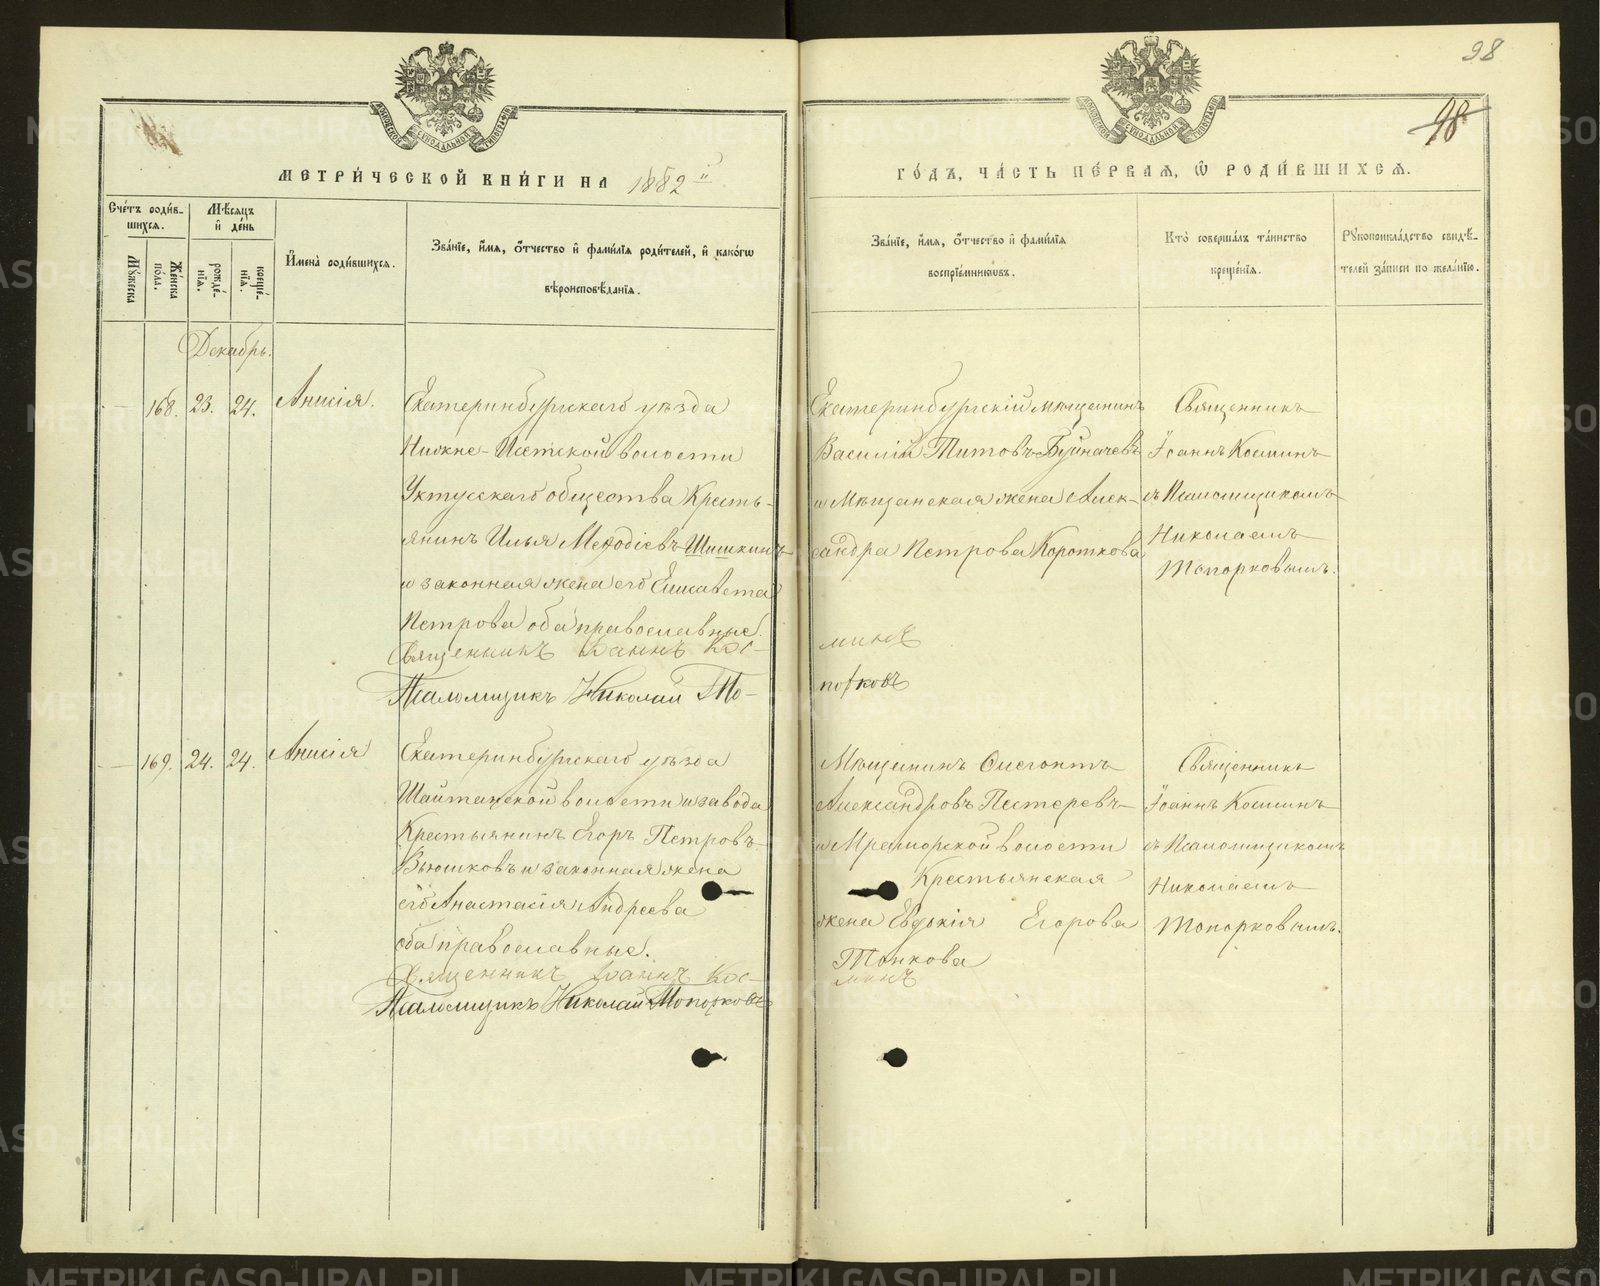 98
98
МЕТРИ́ЧЕСКОЙ КНИ́ГИ НА 1882 й
ГО́ДЪ, ЧА́СТЬ ПЕ́РВАѦ, Ѡ҆ РОДИ́ВШИХСѦ.
Сче́тъ роди́в-
шихсѧ.
Мѣ́сѧцъ
и҆ де́нь
Му́жеска
Же́нска
пола.
рожде́-
нїѧ.
креще́-
нїѧ.
И҆мена̀ роди́вшихсѧ.
Зва́нїе, и҆́мѧ, ѻ҆́тчество и҆ фами́лїѧ роди́телей, и҆ како́гѡ
вѣроисповѣ́данїѧ.
Зва́нїе, и҆́мѧ, ѻ҆́тчество и҆ фами́лїѧ
воспрїе́мникѡвъ.
Кто̀ соверша́лъ та́инство
креще́нїѧ.
Рꙋкоприкла́дство свидѣ́-
телей за́писи по жела́нїю.
Декабрь.
168. 23. 24. Анисія.
Екатеринбургскаго уѣзда
Нижне-Исетской волости
Уктусскаго общества Кресть-
янинъ Илья Меѳодіевъ Шишкинъ
и законная жена его Елисавета
Петрова оба православные.
Священникъ Іоаннъ Кос-
Псаломщикъ Николай То-
Екатеринбургскій мѣщанинъ
Василій Титовъ Буйначевъ
и Мѣщанская жена Алек-
сандра Петрова Короткова
минъ
порковъ
Священникъ
Іоаннъ Косминъ
съ Псаломщикомъ
Николаемъ
Топорковымъ.
169. 24. 24. Анисія
Екатеринбургскаго уѣзда
Шайтанской волости и завода
Крестьянинъ Егоръ Петровъ
Вьюшковъ и законная жена
его Анастасія Андреева
оба православные.
Священникъ Іоаннъ Кос-
Псаломщикъ Николай Топорковъ
Мѣщанинъ
Александровъ Пестеревъ
и Мраморской волости
Крестьянская
жена Евдокія Егорова
Тонкова
минъ
Священникъ
Іоаннъ Косминъ
съ Псаломщикомъ
Николаемъ
Топорковымъ.
METRIKI.GASO-URAL.RU